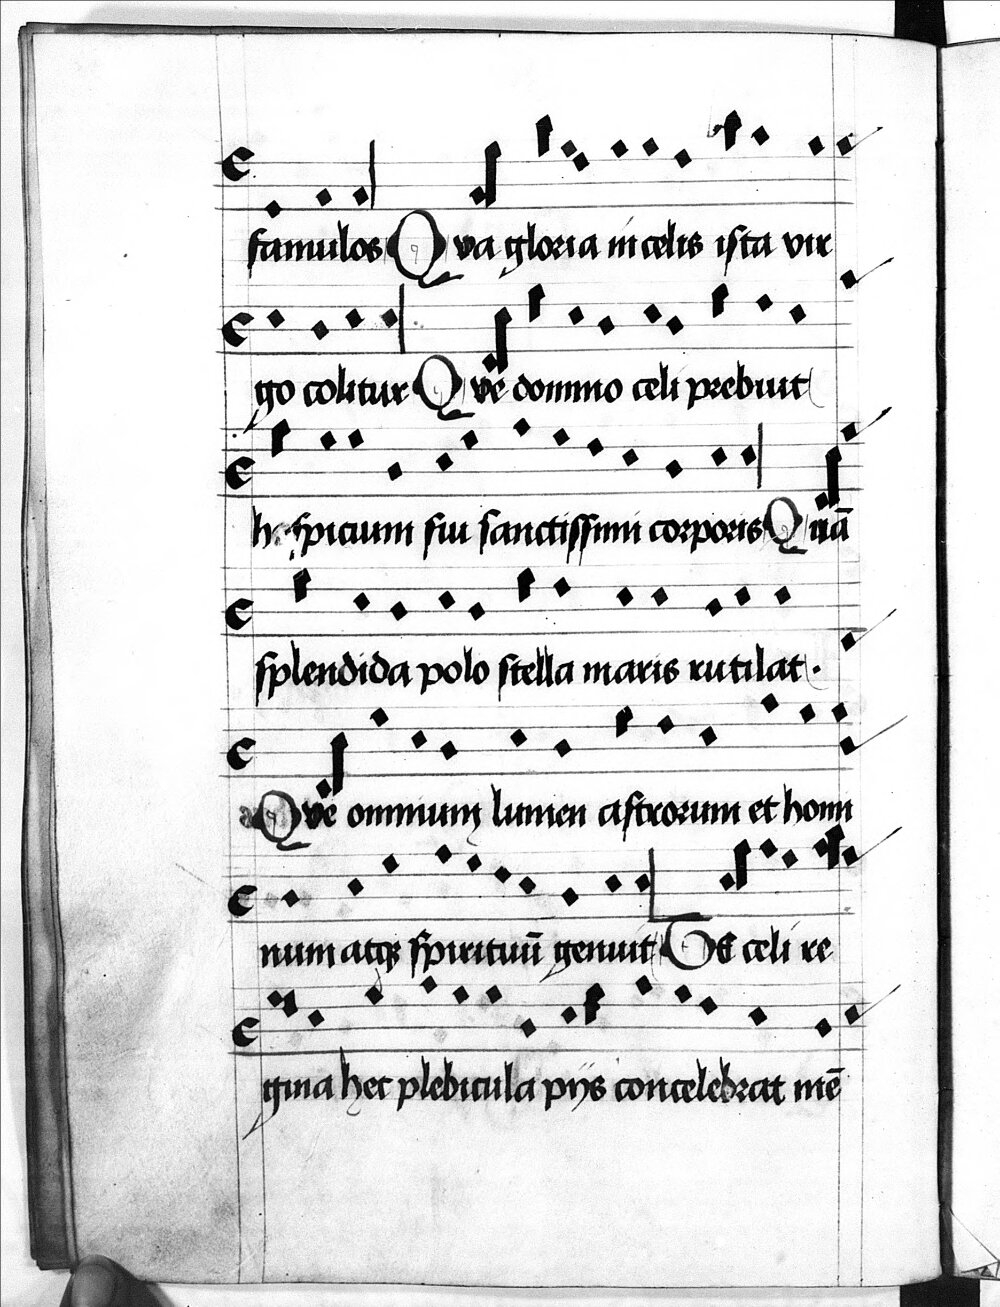 famulos Qva gloria in celis ista vir
go colitur Qvē domino celi prebuit
hospicium sui sanctissimi corporis Quā
splendida polo stella maris rutilat.
Qvē omnium lumen astrorum et homi
num atqȝ spirituū genuit Te celi re
gina hec plebicula pijs concelebrat mē